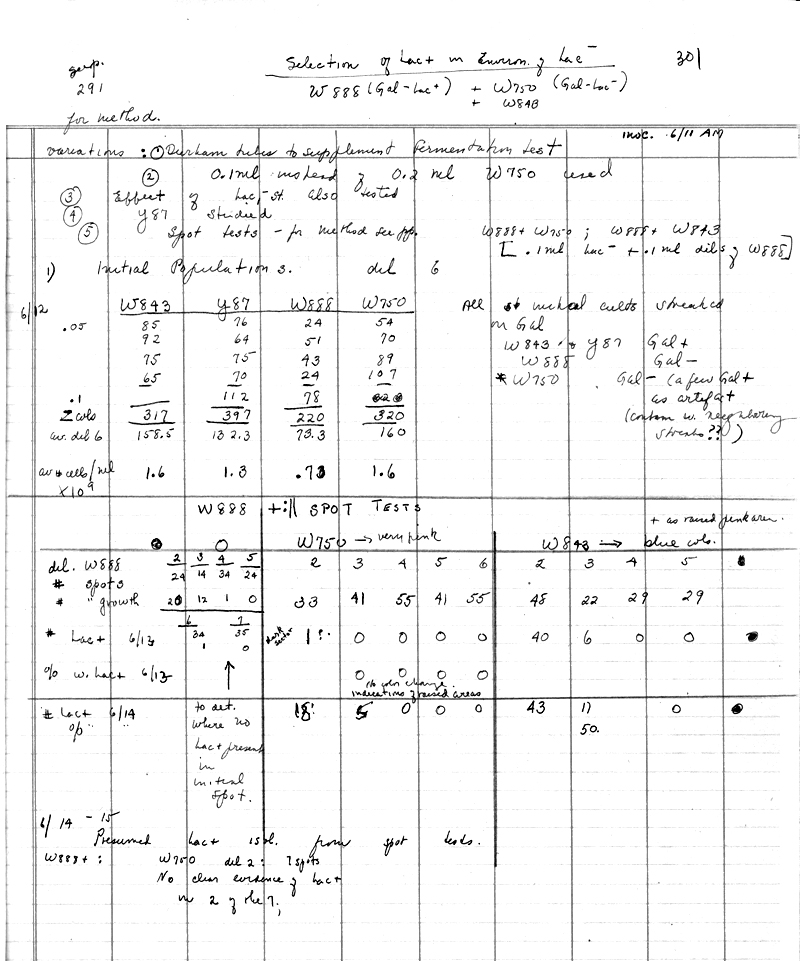 Selection of Lac+ in Environ. of Lac- 301
see p. 291 for method.
W888 (Gal-Lac+) + W750 (Gal-Lac-)
+ W843
inoc. 6/11 AM
variations : ① Durham tubes to supplement fermentation test
② 0.1 ml instead of 0.2 ml W750 used
③ Effect of Lac, st. also tested
④ Y87 studied
⑤ Spot tests - for method see pp. W888+ W750 ; W888+ W843
[ .1 ml Lac- + .1 ml dils of W888]
1) Initial Populations. dil 6
6/12 W843 Y87 W888 W750
.05 85 76 24 54
92 64 51 70
75 75 43 89
65 70 24 107
.1 112 78
Σ cols 317 397 220 320
av. dil 6 158.5 132.3 73.3 160
av # cells/ml 1.6 1.3 .73 1.6
x10⁹
All cults streaked
on Gal
W843 & Y87 Gal+
W888 Gal-
* W750 Gal- (a few Gal+
as artifact
(contam w. neighboring
streaks??)
W888 +:// SPOT TESTS
+ as raised pink area.
0 W750 → very pink W843 → blue cols.
dil. W888 2 3 4 5 2 3 4 5 6 2 3 4 5
# spots 24 14 34 24
# " growth 20 12 1 0 33 41 55 41 55 48 22 29 29
6 7
34 35
1 0
# Lac+ 6/13 dark sector 1? 0 0 0 0 40 6 0 0
% w. Lac+ 6/13 0 0 0 0
No color change.
indications of raised areas
# Lac+ 6/14 18! 5 0 0 0 43 11 0
% " " 50.
to det.
where no
Lac+ present
in
initial
spot.
6/14 - 15
Presumed Lac+ isol. from spot tests.
W888+ : W750 dil 2: 7 spots
No clear evidence of Lac+
in 2 of the 7,